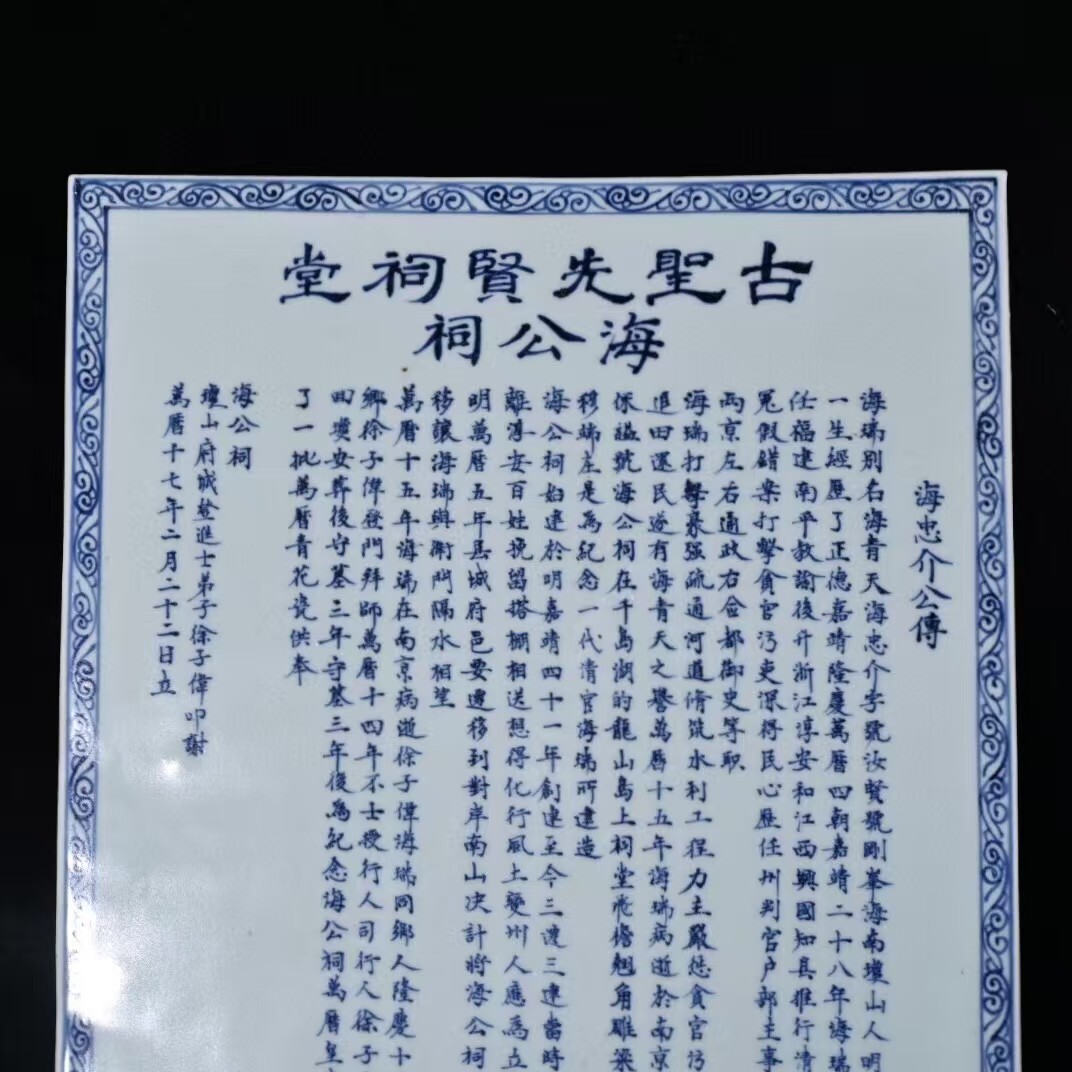 古聖先賢祠堂
海公祠
海忠介公傳
海瑞別名海青天海忠介字號汝賢號剛峯海南瓊山人明
一生經歷了正德嘉靖隆慶萬曆四朝嘉靖二十八年海瑞
任福建南平教諭後升浙江淳安和江西興國知具推行清
冤假錯案打擊貪官汚吏深得民心歷任州判官户部主事
兩京左右通政右佥都御史等职
海瑞打擊豪强疏通河道脩筑水利工程力主嚴惩貪官汚
退田還民遂有海青天之譽萬曆十五年海瑞病逝於南京
保謚號海公祠在千島湖的龍山島上祠堂飛檐翹角雕梁
移端庄是爲紀念一代清官海瑞所建造
海公祠始建於明嘉靖四十一年創建至今三遷三建當時
離淳安百姓挽留搭棚相送想得化行風土變州人應爲立
明萬曆五年县城府邑要遷移到對岸南山决計將海公祠
移讓海瑞與衙門隔水相望
萬曆十五年海瑞在南京病逝徐子偉海瑞同鄉人隆慶十
鄉徐子偉登門拜師萬曆十四年不士授行人司行人徐子
回瓊安葬後守墓三年守墓三年後爲紀念海公祠萬曆皇
了一批萬曆青花瓷供奉
海公祠
瓊山府城登進士弟子徐子偉叩謝
萬曆十七年二月二十二日立